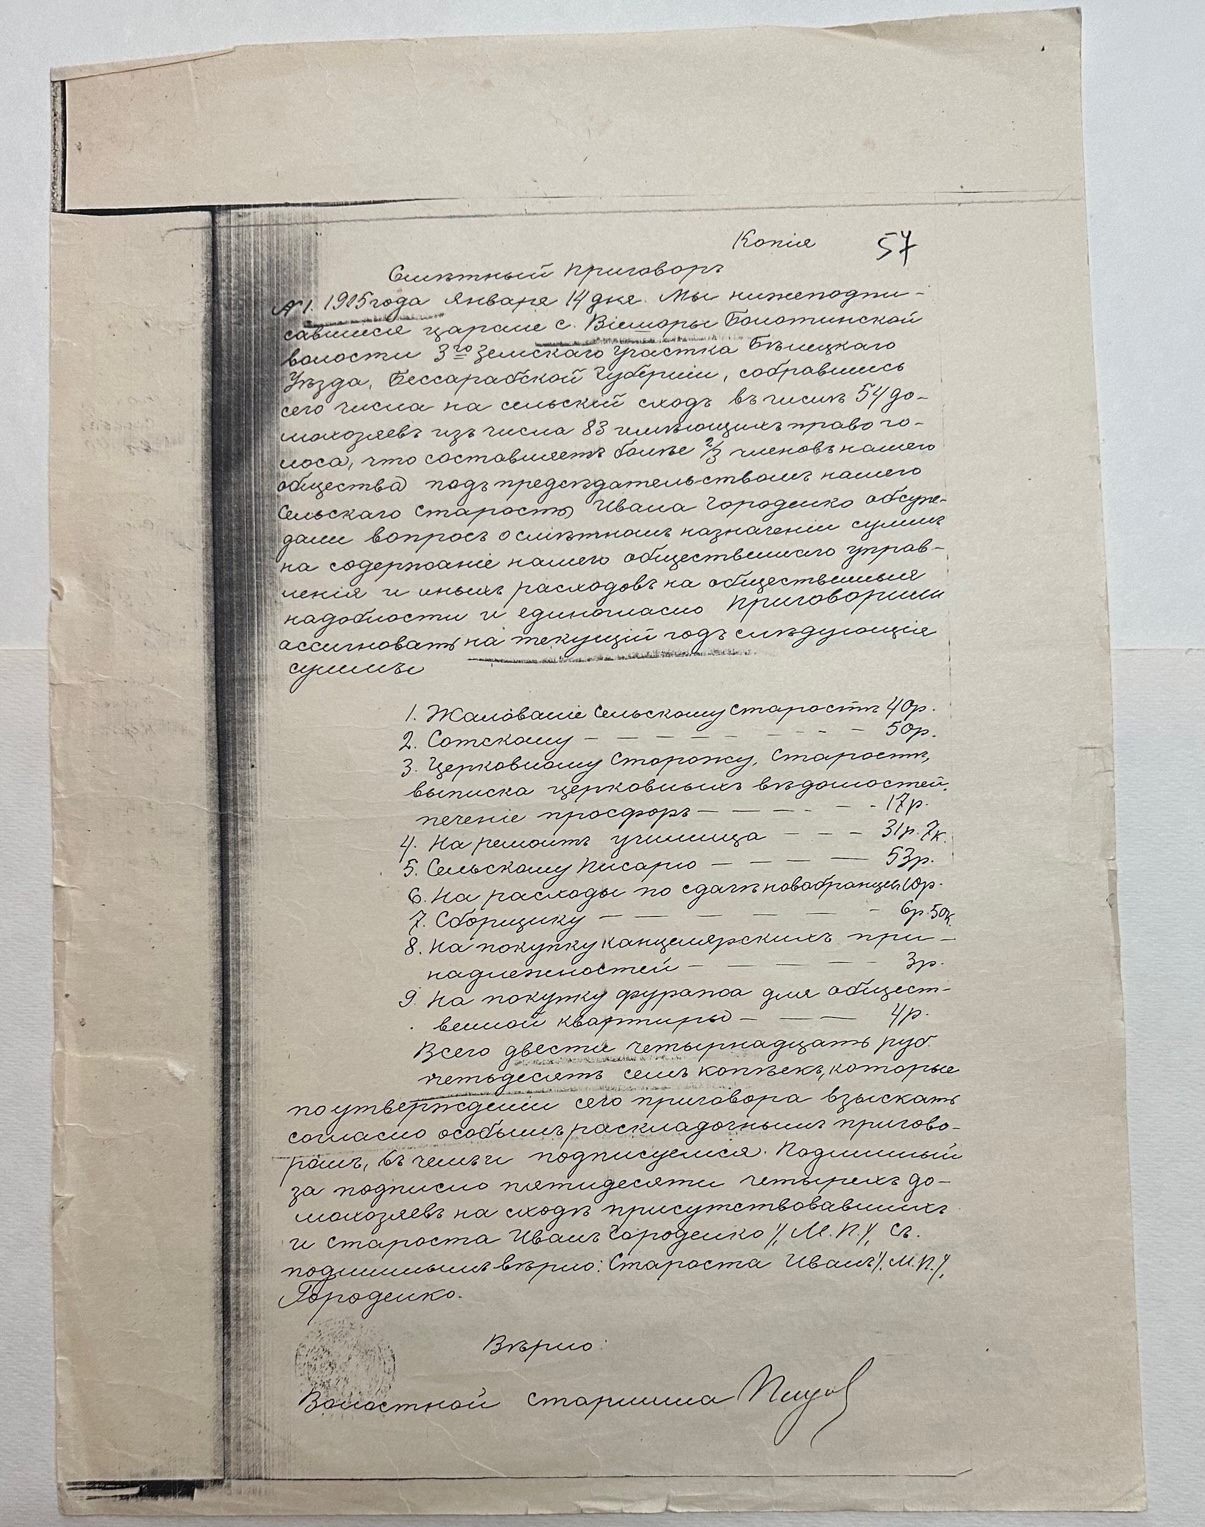 Копія 57
Смѣтный приговоръ
№ 1. 1915 года Января 14 дня. Мы нижеподпи-
савшиеся царане с. Віишоры Болотинской
волости 3го Земскаго Участка Бѣлецкаго
Уѣзда, Бессарабской Губерніи, собравшись
сего числа на сельскій сходъ въ числѣ 54 до-
мохозяевъ изъ числа 83 имѣющихъ право го-
лоса, что составляетъ болѣе 2/3 членовъ нашего
общества подъ предсѣдательствомъ нашего
Сельскаго Старосты Ивана Городенко обсуж-
дали вопросъ о смѣтномъ назначеніи суммъ
на содержаніе нашего общественнаго управ-
ленія и иныхъ расходовъ на общественныя
надобности и единогласно приговорили
ассигновать на текущій годъ слѣдующія
суммы
1. Жалованіе Сельскому Старостѣ 40р.
2. Сотскому — — — — — — — 50р.
3. Церковному Сторожу, Старостѣ,
выписка церковныхъ вѣдомостей,
печеніе просфоръ — — — — — 17р.
4. На ремонтъ училища — — — 31р. 7к.
5. Сельскому Писарю — — — — 53р.
6. На расходы по сдачѣ новобранцевъ 10р.
7. Сборщику — — — — — — 6р. 50к.
8. На покупку канцелярскихъ при-
надлежностей — — — — — 3р.
9. На покупку фуража для общест-
венной квартиры — — — 4р.
Всего двести четырнадцать руб
петьдесятъ семь копѣекъ, которые
по утвержденіи сего приговора взыскать
согласно особымъ раскладочнымъ пригово-
рамъ, въ чемъ и подписуемся. Подлинный
за подписю пятидесяти четырехъ до-
мохозяевъ на сходѣ присутствовавшихъ
и староста Иванъ Городенко /М.П./, Съ
подлиннымъ вѣрно: Староста Иванъ /М.П./,
Городенко.
Вѣрно:
Волостной старшина